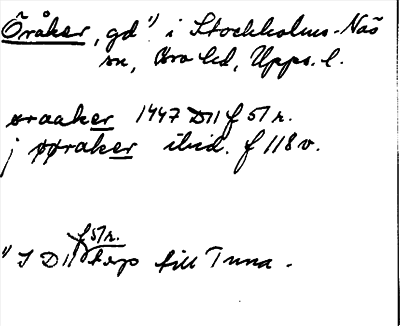 Öråker, gd¹⁾ i Stockholms-Näs
sn, Bro hd, Upps. l.
øraaker 1447 D11 f 51 r.
j øøraker ibid. f 118 v.
¹⁾ I D11 f 51 r. torp till Tuna.